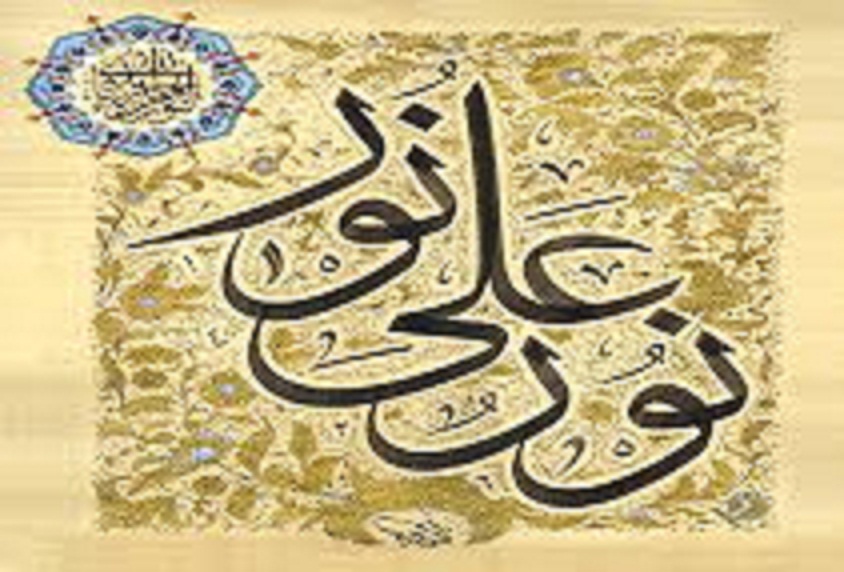 نُورٌ عَلَى نُورٍ